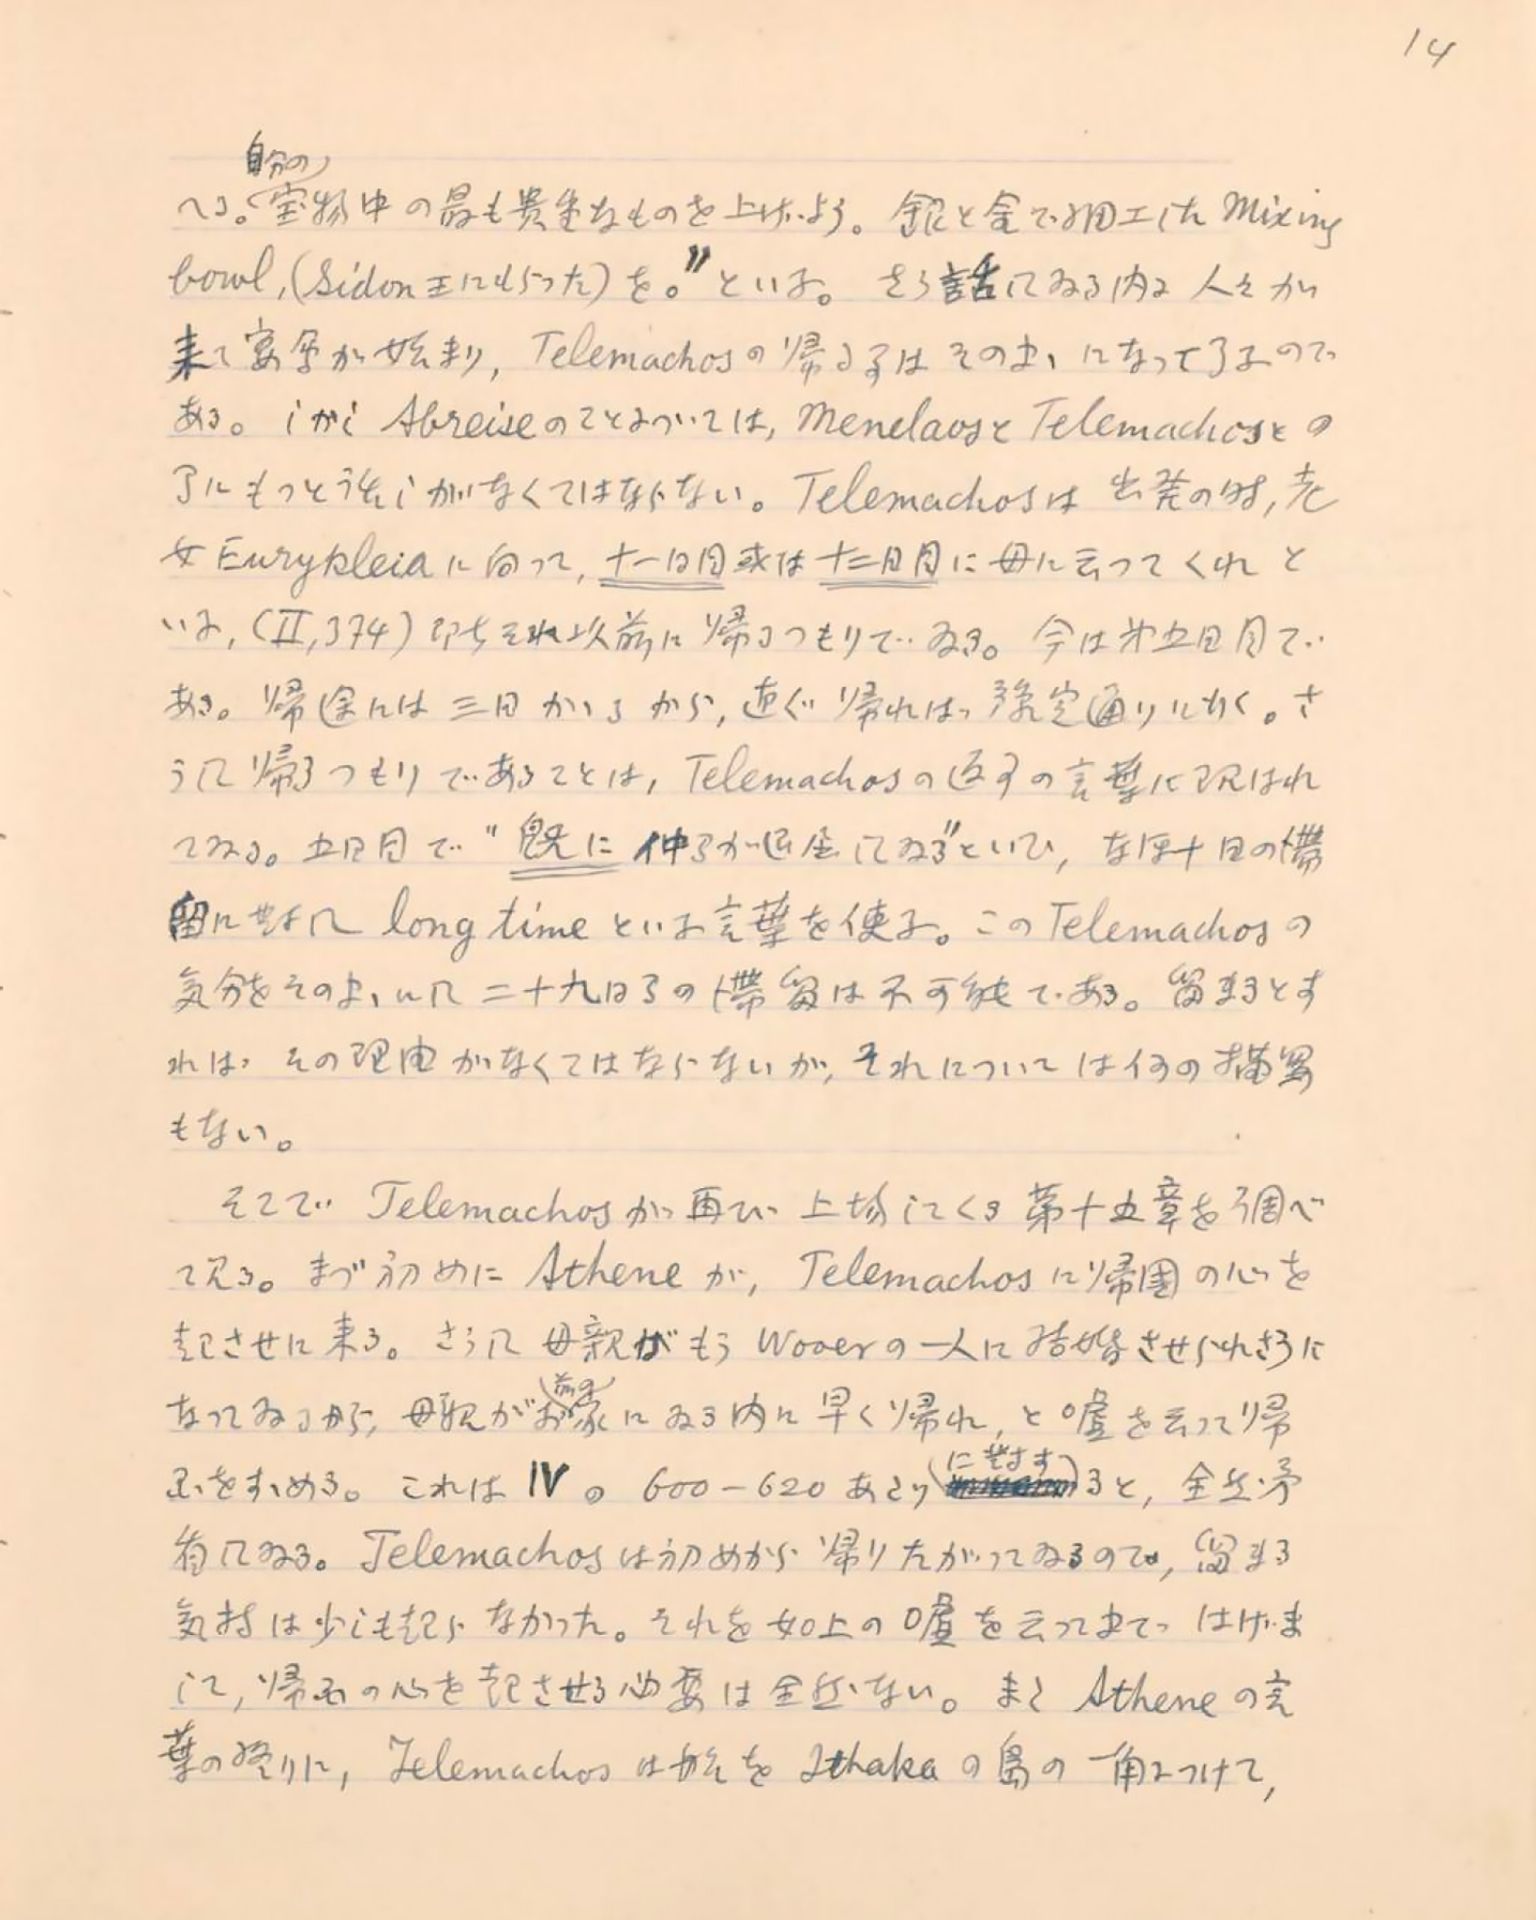 14
自分の
へる。宝物中の最も貴重なものを上げよう。銀と金で細工した Mixing
bowl,(Sidon 王にもらつた) を。"といふ。さう話してゐる内に人々が
来て宴会が始まり, Telemachosの帰る事はそのまゝになつて了ふので
ある。しかし Abreiseのことについては, Menelaosと Telemachosとの
了にもつとうなしがなくてはならない。Telemachosは出発の時, 老
女 Eurykleiaに向つて, 十一日目或は十二日目に母に云つてくれと
いふ, (II,374) 即ちそれ以前に帰るつもりでゐる。今は第五日目で
ある。帰途には三日かゝるから, 直ぐ帰れば予定通りに行く。さ
うして帰るつもりであることは, Telemachosの返事の言葉に現はれ
てゐる。五日目で"既に仲間が退屈してゐる"といひ, なほ十日の滞
留に対して long timeといふ言葉を使ふ。このTelemachosの
気分をそのまゝにして二十九日間の滞留は不可能である。留まるとす
れば, その理由がなくてはならないが, それについては何の描写
もない。
そこで Telemachosが再び上場してくる第十五章を調べ
て見る。まづ初めに Atheneが, Telemachosに帰国の心を
起させに来る。さうして母親がもう Wooerの一人に結婚させられさうに
前の
なつてゐるから, 母親がお家にゐる内に早く帰れ, と嘘を云つて帰
に対す
国をすゝめる。これは IVの 600-620 あたりると, 全然矛
盾してゐる。Telemachosは初めから帰りたがつてゐるので, 留まる
気持は少しも起らなかつた。それを如上の嘘を云つてまではげま
して, 帰国の心を起させる必要は全然ない。また Atheneの言
葉の終りに, Telemachosは船を Ithakaの島の一角につけて,